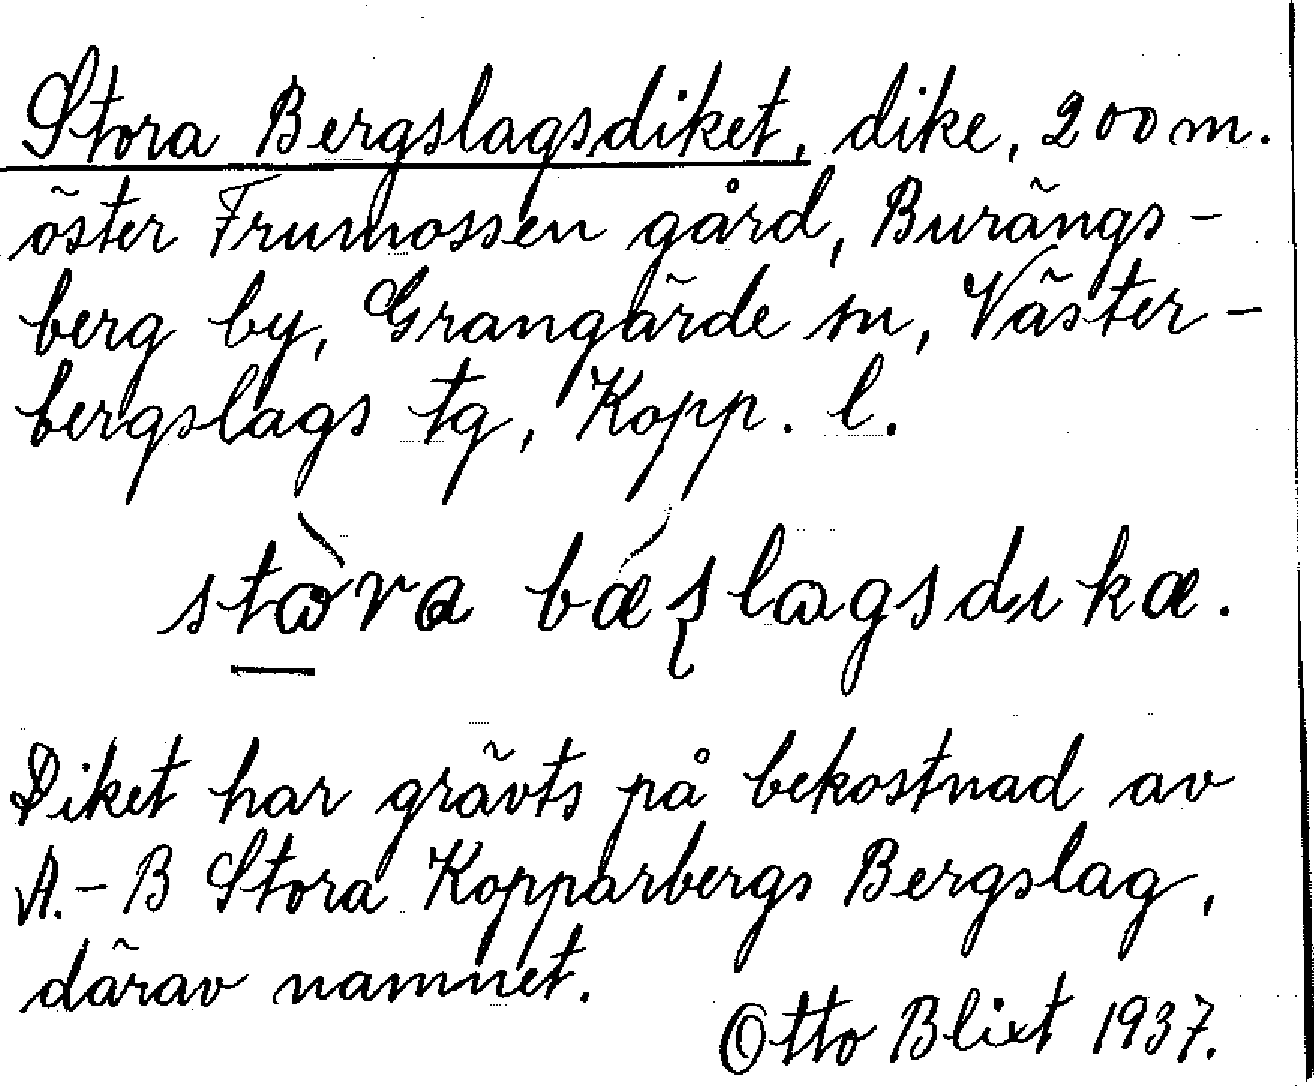 Stora Bergslagsdiket, dike, 200 m.
öster Frumossen gård, Burängs-
berg by, Grangärde sn, Väster-
bergslags tg, Kopp. l.
Diket har grävts på bekostnad av
A.-B Stora Kopparbergs Bergslag,
därav namnet.
Otto Blixt 1937.